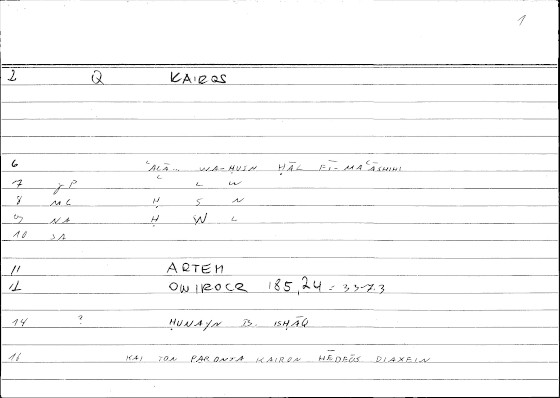 1
2 Q KAIROS
6 ʿALĀ... WA-ḤUSN ḤĀL FĪ-MAʿĀSHIHI
7 gP ʿ L W
8 ML Ḥ S N
9 NA Ḥ W L
10 SA
11 ARTEM
12 ONIROCR 185,24 = 337.3
14 ? ḤUNAYN B. ISḤĀQ
16 KAI TON PARONTA KAIRON HĒDEŌS DIAXEIN